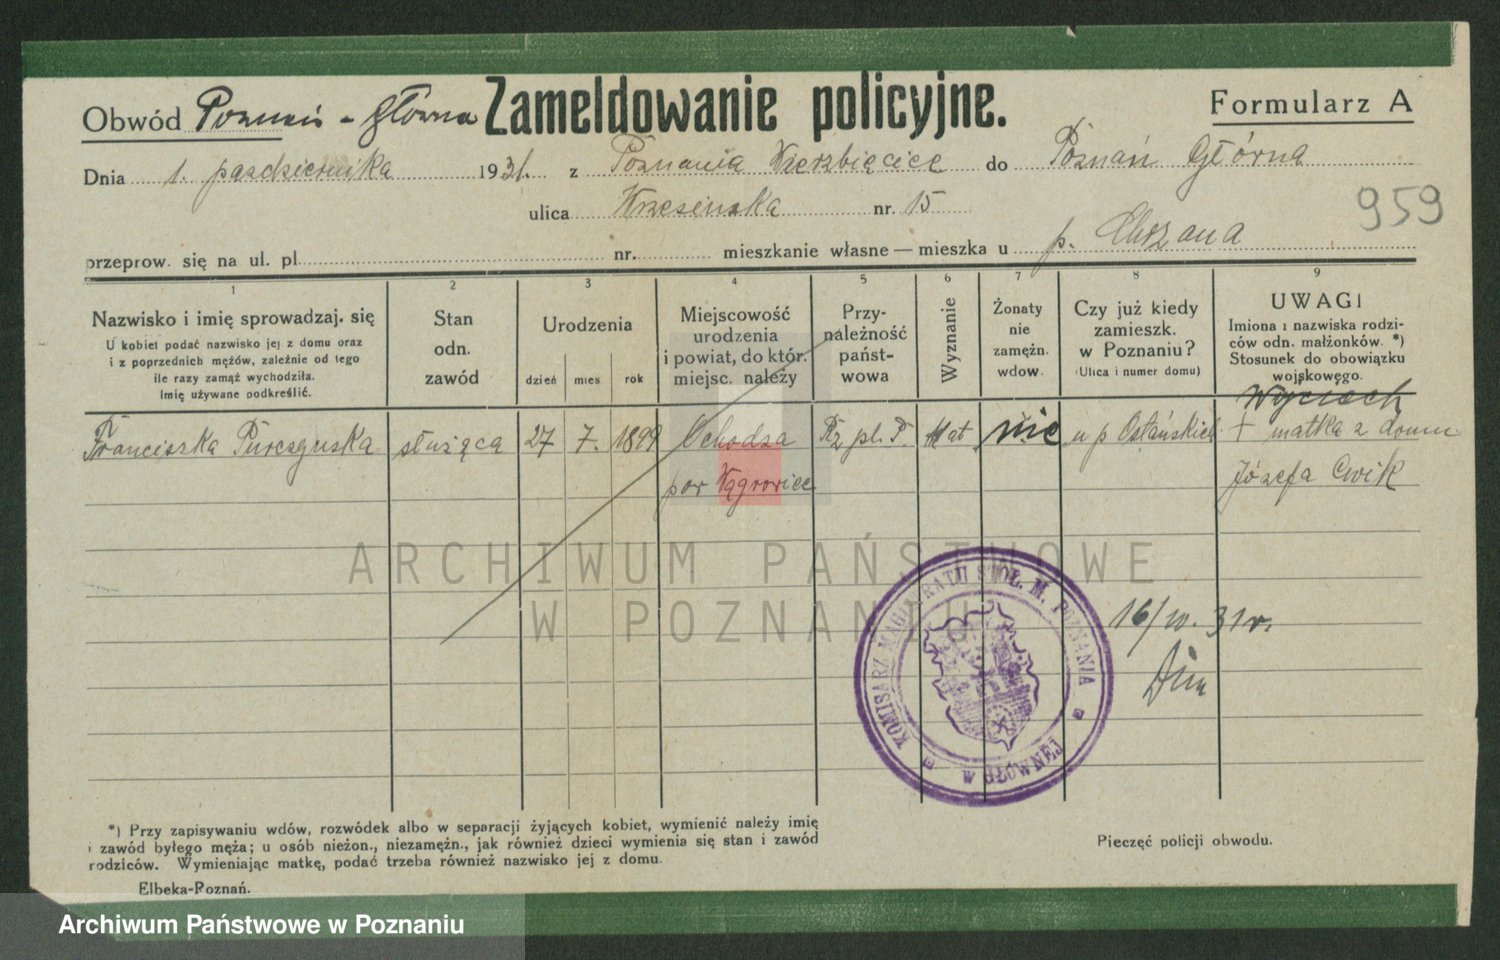 Obwód Poznań - Główna Zameldowanie policyjne. Formularz A
Dnia 1. października 1931. z Poznania Wierzbięcice do Poznań Główna
ulica Wrzesińska nr. 15
959
przeprow. się na ul. pl. nr. mieszkanie własne — mieszka u p.
1 2 3 4 5 6 7 8 9
Nazwisko i imię sprowadzaj. się
U kobiet podać nazwisko jej z domu oraz
i z poprzednich mężów, zależnie od tego
ile razy zamąż wychodziła.
Imię używane podkreślić.
Stan
odn.
zawód
Urodzenia
dzień mies rok
Miejscowość
urodzenia
i powiat, do któr.
miejsc. należy
Przy-
należność
państ-
wowa
Wyznanie
Żonaty
nie
zamężn.
wdow.
Czy już kiedy
zamieszk.
w Poznaniu?
(Ulica i numer domu)
UWAGI
Imiona i nazwiska rodzi-
ców odn. małżonków. *)
Stosunek do obowiązku
wojskowego.
Wojciech
Franciszka służąca 27 7. 1899 Ochodza Rz. pl. P. kat nie u p + matka z domu
pow Wągrowiec Józefa Cwik
KOMISARZ MAGISTRATU STOŁ. M. POZNANIA
W GŁÓWNEJ
16/10. 31 r.
*) Przy zapisywaniu wdów, rozwódek albo w separacji żyjących kobiet, wymienić należy imię
i zawód byłego męża; u osób nieżon., niezamężn., jak również dzieci wymienia się stan i zawód
rodziców. Wymieniając matkę, podać trzeba również nazwisko jej z domu.
Pieczęć policji obwodu.
Elbeka-Poznań.
ARCHIWUM PAŃSTWOWE
W POZNANIU
Archiwum Państwowe w Poznaniu